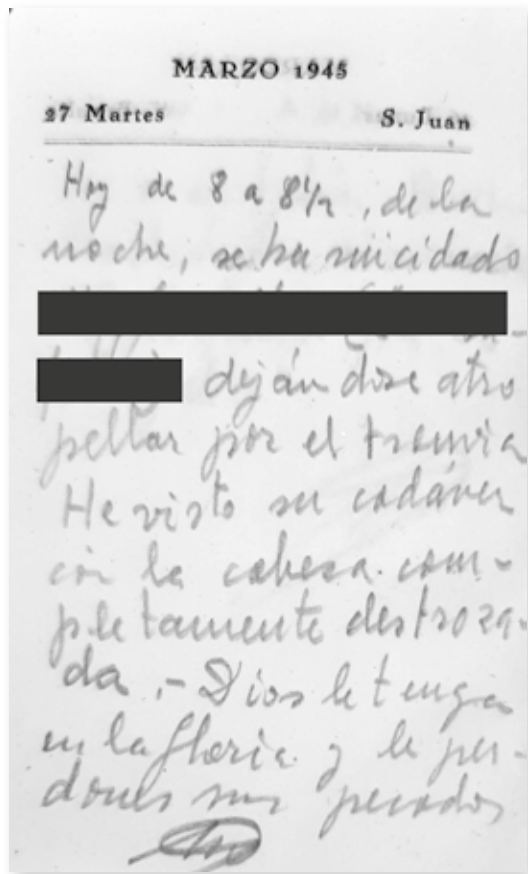 MARZO 1945
27 Martes S. Juan
Hoy de 8 a 8½, de la
noche, se ha suicidado
dejándose atro
pellar por el tranvia
He visto su cadáver
con la cabeza com-
pletamente destroza-
da.- Dios le tenga
en la Gloria y le per-
dones sus pecados